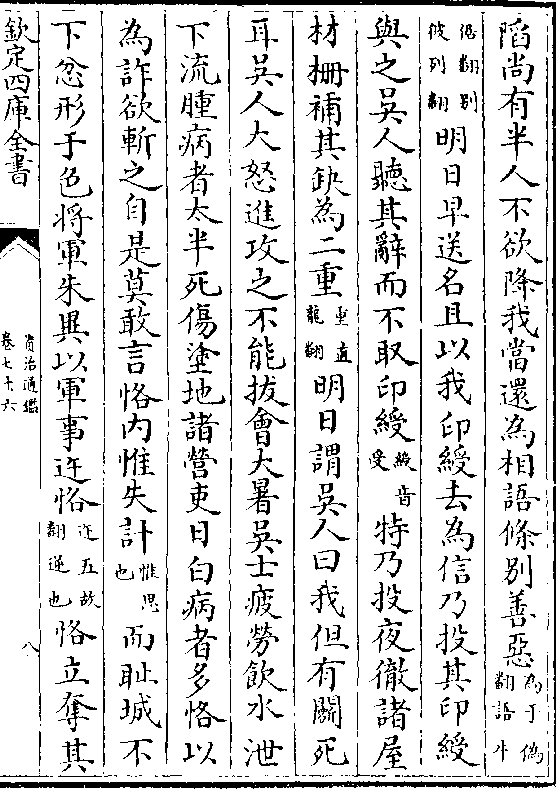 陷尚有半人不欲降我當還為相語條別善惡為于偽翻語牛
倨翻別彼列翻明日早送名且以我印綬去為信乃投其印綬
與之吳人聽其辭而不取印綬綬音受特乃投夜徹諸屋
材柵補其缺為二重重直龍翻明日謂吳人曰我但有鬭死
耳吳人大怒進攻之不能拔會大暑吳士疲勞飲水泄
下流腫病者太半死傷塗地諸營吏日白病者多恪以
為詐欲斬之自是莫敢言恪內惟失計惟思也而恥城不
下忿形于色將軍朱異以軍事迕恪迕五故翻逆也恪立奪其
欽定四庫全書
資治通鑑
卷七十六
八